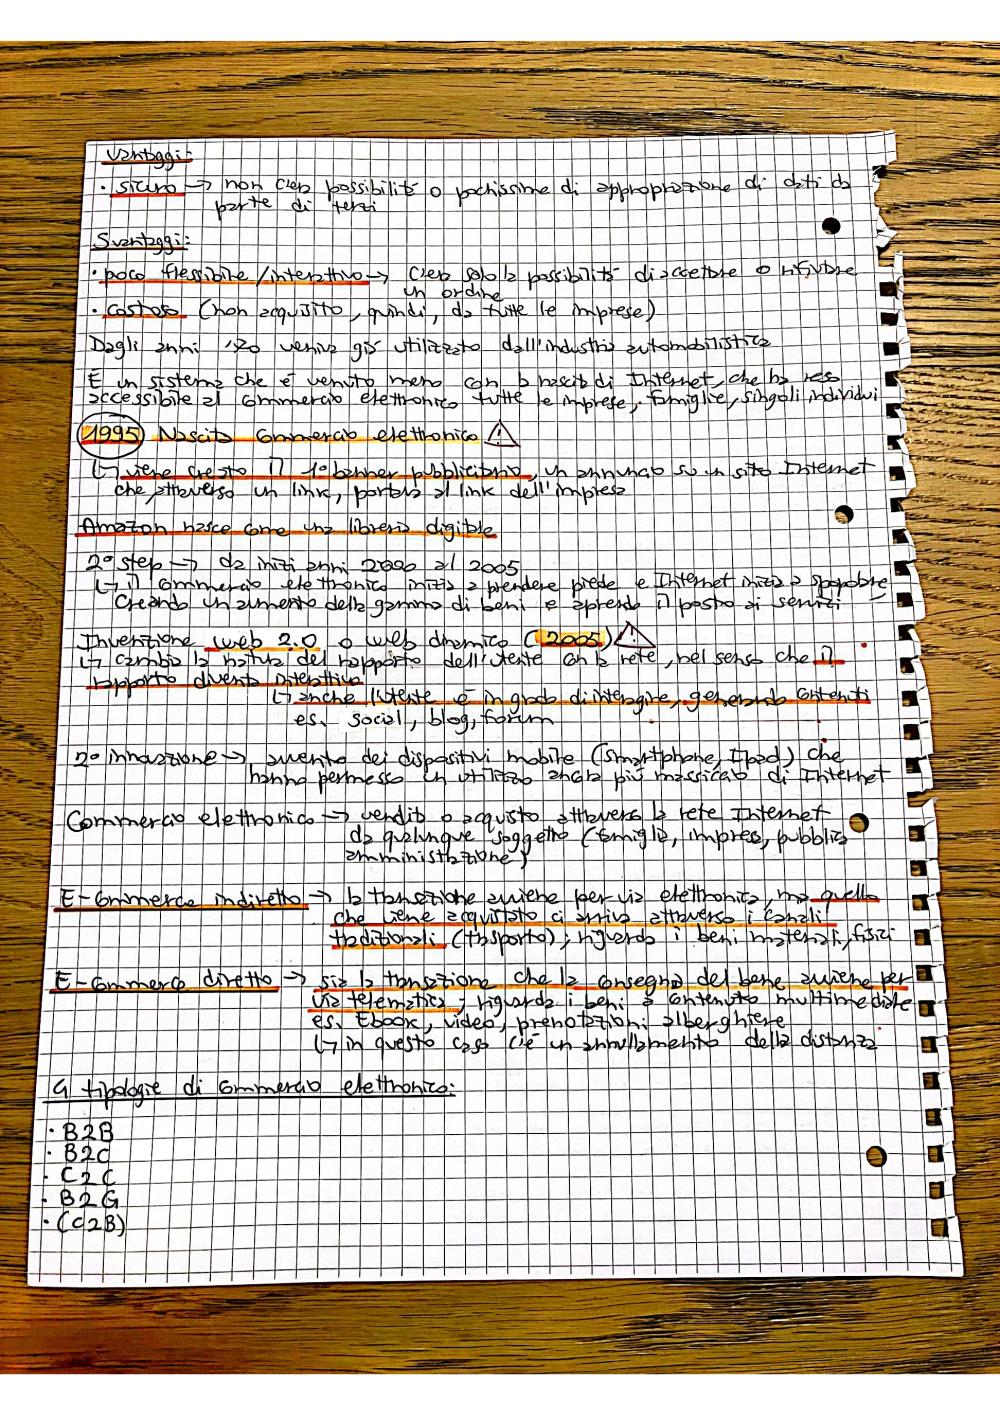 Vantaggi:
· sicuro → non crea possibilità o pochissime di appropriazione di dati da
parte di terzi
Svantaggi:
· poco flessibile/interattivo → crea solo la possibilità di accettare o rifiutare
un ordine
· costoso (non acquisito, quindi, da tutte le imprese)
Dagli anni '70 veniva già utilizzato dall'industria automobilistica
È un sistema che è venuto meno con la nascita di Internet, che ha reso
accessibile al commercio elettronico tutte le imprese, famiglie, singoli individui
1995 Nascita commercio elettronico ⚠
↳ viene creato il 1° banner pubblicitario, un annuncio su un sito Internet
che, attraverso un link, portava al link dell'impresa
Amazon nasce come una libreria digitale
2° step → da inizi anni 2000 al 2005
↳ il commercio elettronico inizia a prendere piede e Internet inizia a spopolare
creando un aumento della gamma di beni e aprendo il posto ai servizi
Invenzione web 2.0 o web dinamico (2005) ⚠
↳ cambia la natura del rapporto dell'utente con la rete, nel senso che il
rapporto diventa interattivo
↳ anche l'utente è in grado di interagire, generando contenuti
es. social, blog, forum
2° innovazione → aumento dei dispositivi mobile (Smartphone, Ipad) che
hanno permesso un utilizzo ancora più massiccio di Internet
Commercio elettronico → vendita o acquisto attraverso la rete Internet
da qualunque soggetto (famiglia, impresa, pubblica
amministrazione)
E-commerce indiretto → la transazione avviene per via elettronica, ma quello
che viene acquistato ci arriva attraverso i canali
tradizionali (trasporto), riguarda i beni materiali, fisici
E-commerce diretto → sia la transazione che la consegna del bene avviene per
via telematica, riguarda i beni a contenuto multimediale
es. Ebook, video, prenotazioni alberghiere
↳ in questo caso c'è un annullamento della distanza
4 tipologie di commercio elettronico:
· B2B
· B2C
· C2C
· B2G
· (C2B)